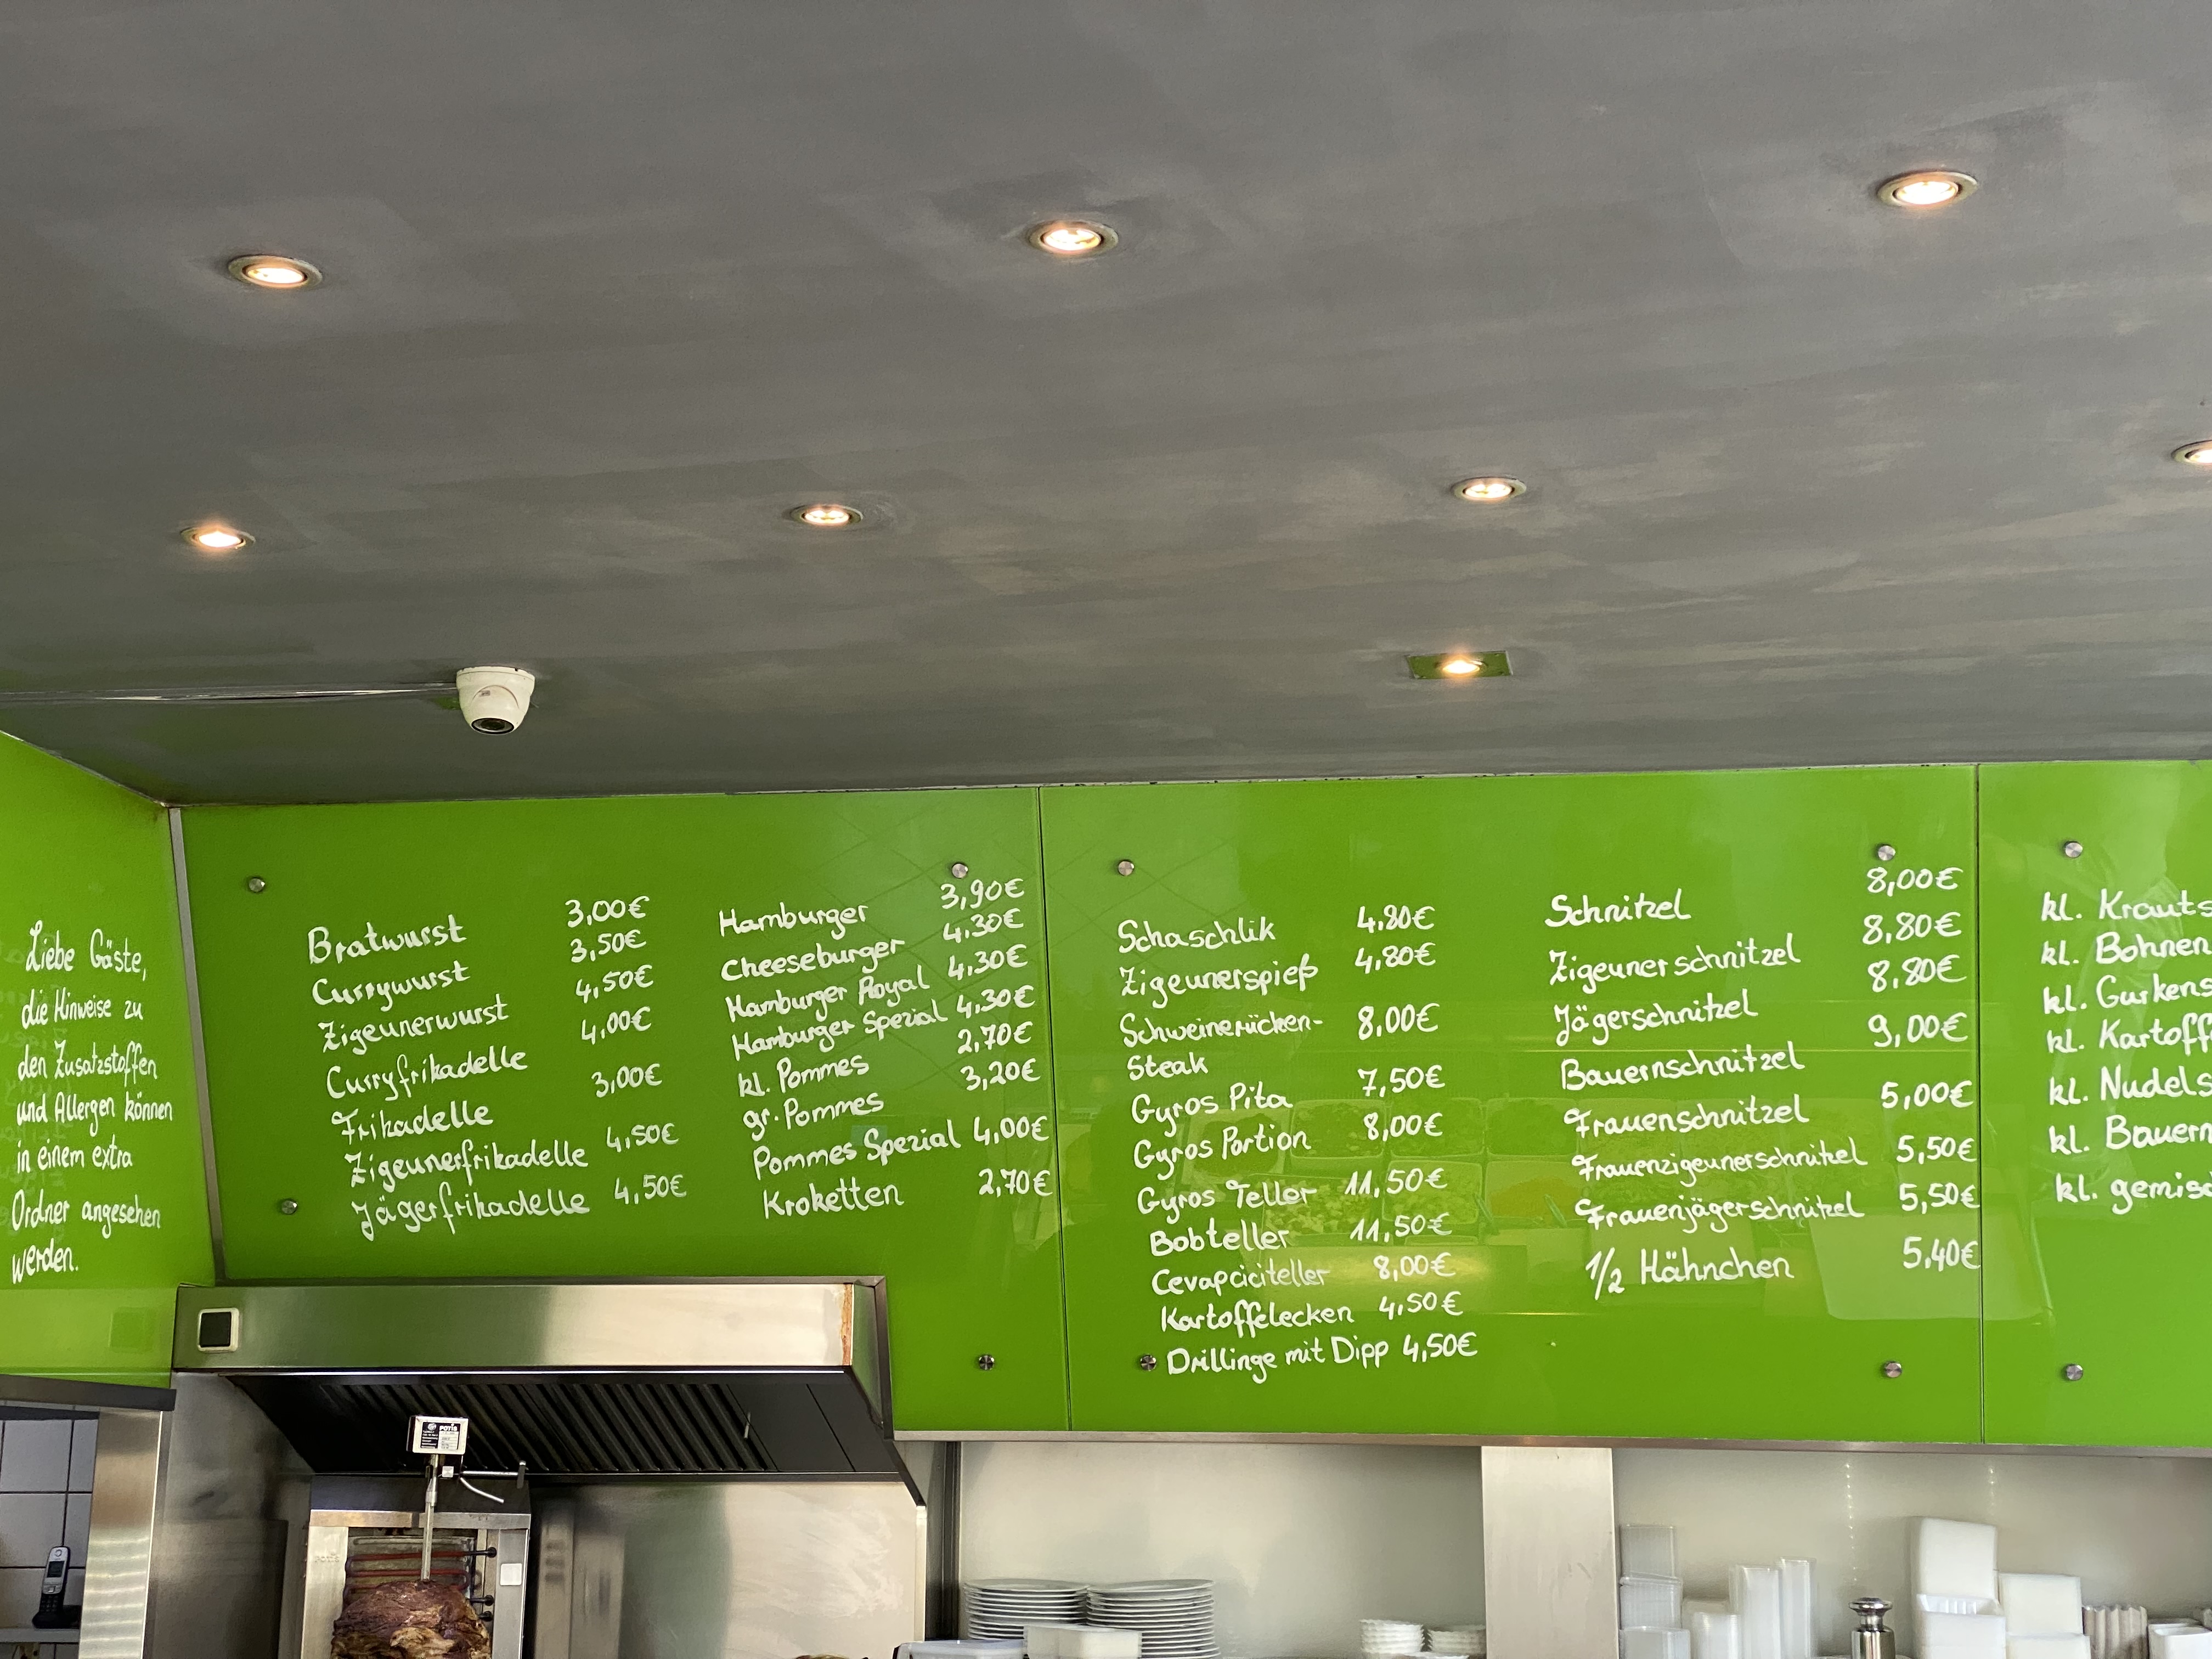 Liebe Gäste,
die Hinweise zu
den Zusatzstoffen
und Allergen können
in einem extra
Ordner angesehen
werden.
Bratwurst 3,00€
Currywurst 3,50€
Zigeunerwurst 4,50€
Curryfrikadelle 4,00€
Frikadelle 3,00€
Zigeunerfrikadelle 4,50€
Jägerfrikadelle 4,50€
Hamburger 3,90€
Cheeseburger 4,30€
Hamburger Royal 4,30€
Hamburger Spezial 4,30€
kl. Pommes 2,70€
gr. Pommes 3,20€
Pommes Spezial 4,00€
Kroketten 2,70€
Schaschlik 4,80€
Zigeunerspieß 4,80€
Schweinerücken- 8,00€
Steak
Gyros Pita 7,50€
Gyros Portion 8,00€
Gyros Teller 11,50€
Bobteller 11,50€
Cevapciciteller 8,00€
Kartoffelecken 4,50€
Drillinge mit Dipp 4,50€
Schnitzel 8,00€
Zigeunerschnitzel 8,80€
Jägerschnitzel 8,80€
Bauernschnitzel 9,00€
Frauenschnitzel 5,00€
Frauenzigeunerschnitzel 5,50€
Frauenjägerschnitzel 5,50€
1/2 Hähnchen 5,40€
kl. Krauts
kl. Bohnen
kl. Gurkens
kl. Kartoff
kl. Nudels
kl. Bauern
kl. gemisc
POTIS